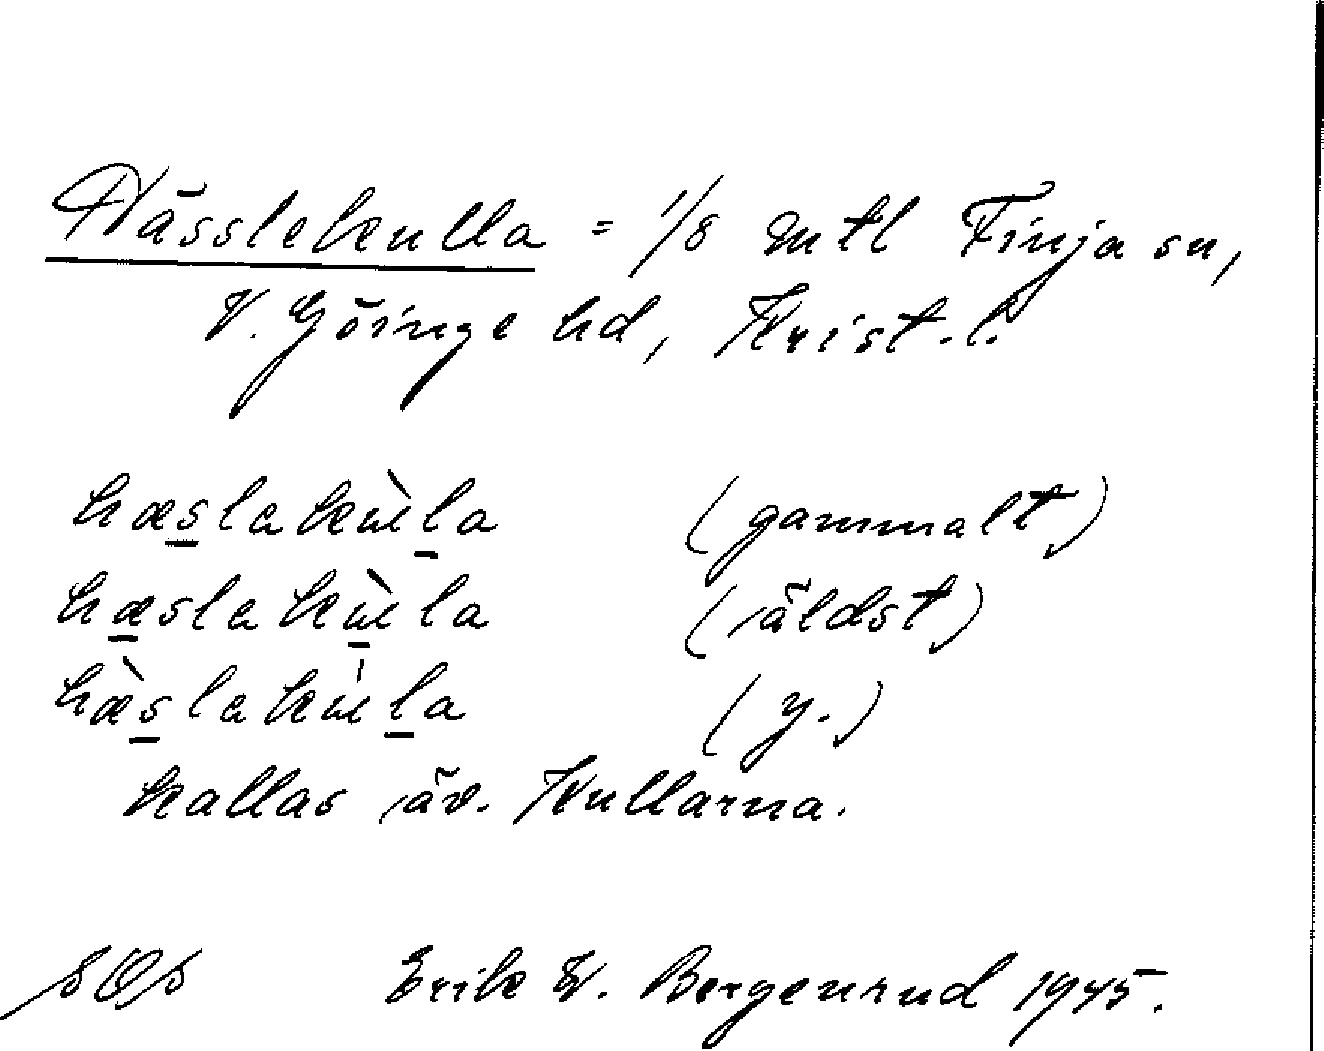 Hässlekulla = 1/8 mtl Finja sn,
V. Göinge hd, Krist. l.
hæslakùla (gammalt)
hæslakùla (äldst)
hæ̀slakúla (y.)
kallas äv. Kullarna.
SOS Erik W. Bergenrud 1945.